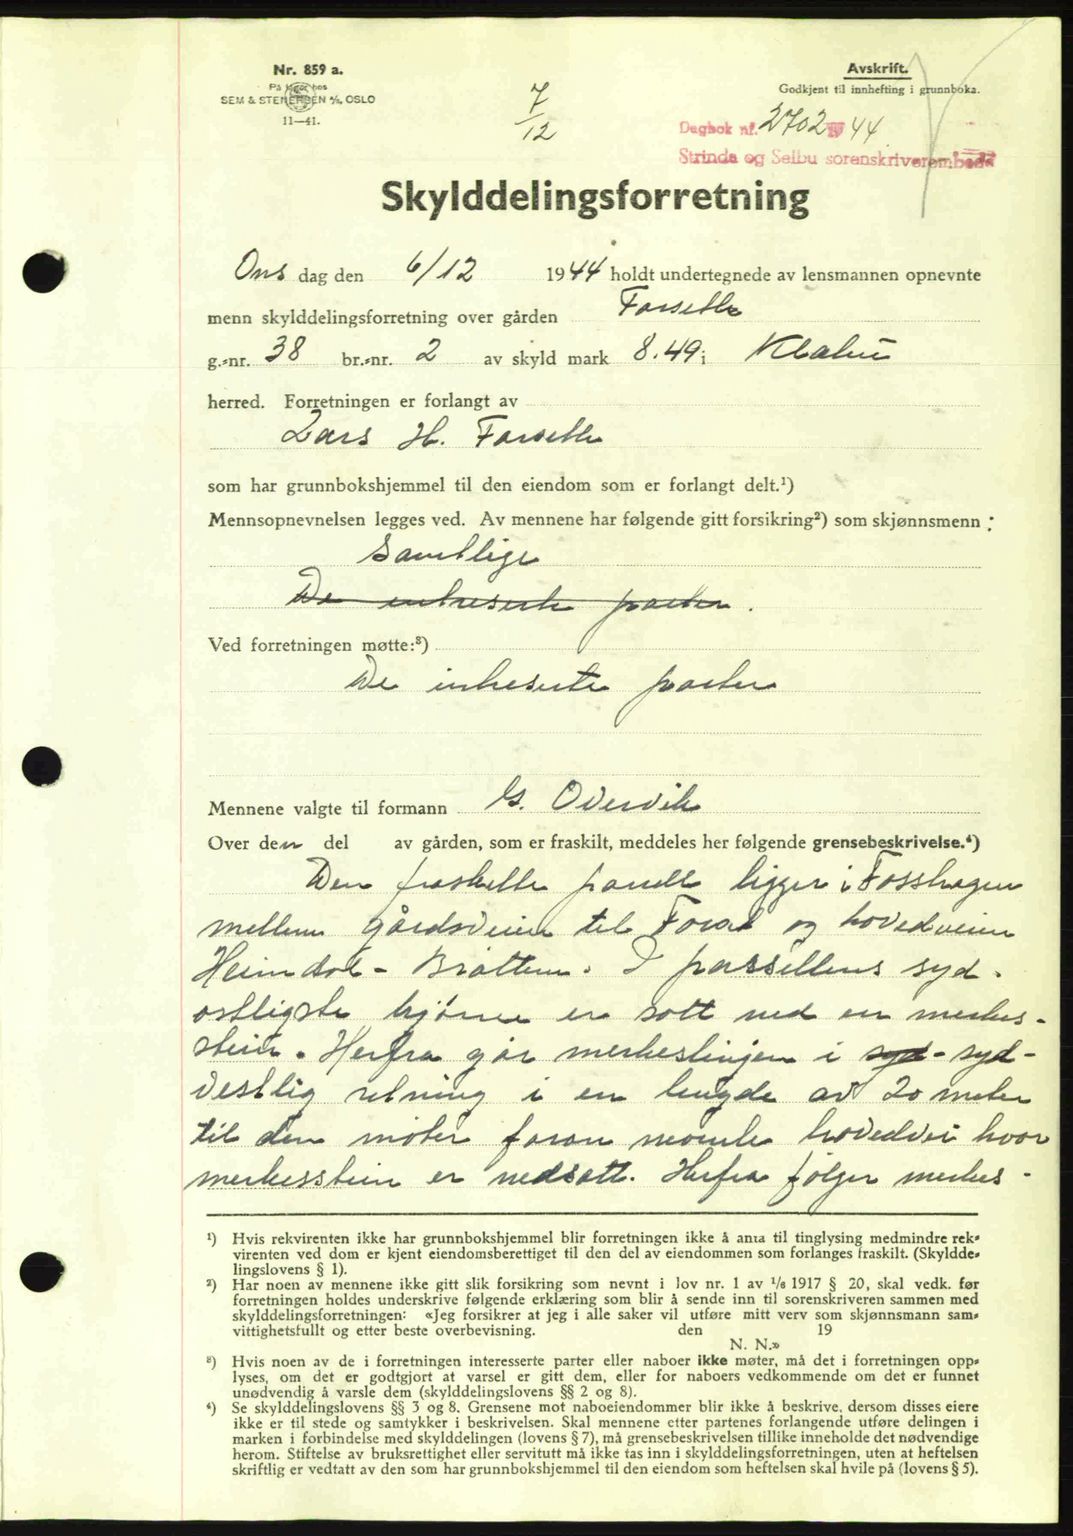 Nr. 859 a.
På lager hos
SEM & STENERSEN A/S, OSLO
11—41.
7/12
Avskrift.
Godkjent til innhefting i grunnboka.
Dagbok nr. 2702 1944
Strinda og Selbu sorenskriverembede
Skylddelingsforretning
Ons dag den 6/12 1944 holdt undertegnede av lensmannen opnevnte
menn skylddelingsforretning over gården Forseth
g.-nr. 38 br.-nr. 2 av skyld mark 8.49 i Klæbu
herred. Forretningen er forlangt av
Lars H. Forseth
som har grunnbokshjemmel til den eiendom som er forlangt delt.¹)
Mennsopnevnelsen legges ved. Av mennene har følgende gitt forsikring²) som skjønnsmenn:
Samtlige
De interesserte parter.
Ved forretningen møtte:³)
De interesserte parter
Mennene valgte til formann G. Overvik
Over den del av gården, som er fraskilt, meddeles her følgende grensebeskrivelse.⁴)
Den fraskilte parsell ligger i Fosshagen
mellem gårdsveien til Fosse og hovedveien
Heimdal - Bratten. I parsellens syd-
østligste hjørne er satt ned en merkes-
stein. Herfra går merkeslinjen i syd- syd-
vestlig retning i en lengde av 20 meter
til den møter foran nevnte hovedvei hvor
merkesstein er nedsatt. Herfra følger merkes-
¹) Hvis rekvirenten ikke har grunnbokshjemmel blir forretningen ikke å anta til tinglysing medmindre rek-
virenten ved dom er kjent eiendomsberettiget til den del av eiendommen som forlanges fraskilt. (Skyldde-
lingslovens § 1).
²) Har noen av mennene ikke gitt slik forsikring som nevnt i lov nr. 1 av 1/6 1917 § 20, skal vedk. før
forretningen holdes underskrive følgende erklæring som blir å sende inn til sorenskriveren sammen med
skylddelingsforretningen: «Jeg forsikrer at jeg i alle saker vil utføre mitt verv som skjønnsmann sam-
vittighetsfullt og etter beste overbevisning. den 19
N. N.»
³) Hvis noen av de i forretningen interesserte parter eller naboer ikke møter, må det i forretningen opp-
lyses, om det er godtgjort at varsel er gitt dem, eller for naboers vedkommende om det er funnet
unødvendig å varsle dem (skylddelingslovens §§ 2 og 8).
⁴) Se skylddelingslovens §§ 3 og 8. Grensene mot naboeiendommer blir ikke å beskrive, dersom disses eiere
ikke er til stede og samtykker i beskrivelsen. Skal mennene etter partenes forlangende utføre delingen i
marken i forbindelse med skylddelingen (lovens § 7), må grensebeskrivelsen tillike inneholde det nødvendige
herom. Stiftelse av bruksrettighet eller servitutt må ikke tas inn i skylddelingsforretningen, uten at heftelsen
skriftlig er vedtatt av den som har grunnbokshjemmel til den eiendom som heftelsen skal hvile på (lovens § 5).